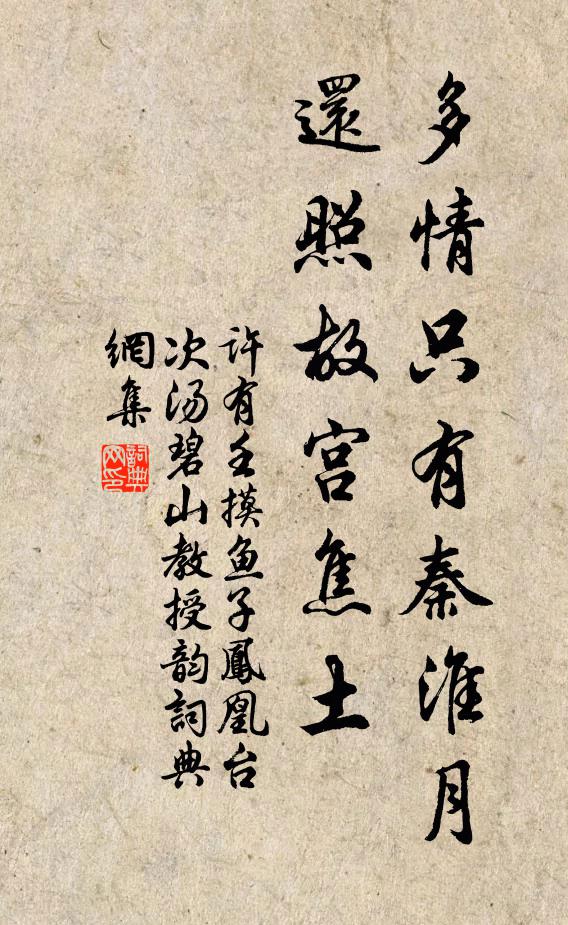 多情只有秦淮月
還照故宫焦土
许有壬摸鱼子鳳凰台
次汤碧山教授韵詞典
網集
詞典网印